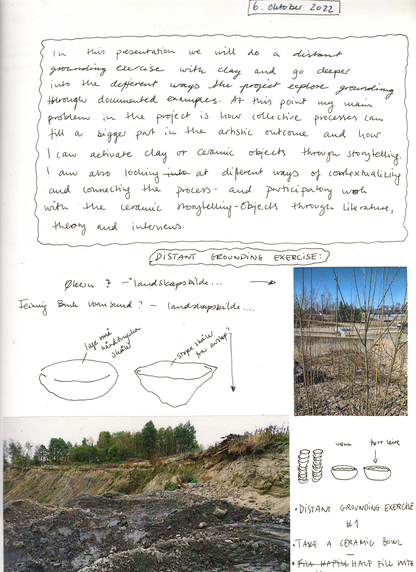 6. oktober 2022
In this presentation we will do a distant
grounding exercise with clay and go deeper
into the different ways the project explore grounding
through documented examples. At this point my main
problem in the project is how collective processes can
fill a bigger part in the artistic outcome and how
I can activate clay or ceramic objects through storytelling.
I am also looking into at different ways of contextualizing
and connecting the process- and participatory work
with the ceramic storytelling-objects through literature,
theory and interviews.
DISTANT GROUNDING EXERCISE:
Økern ? - landskapsbilde...
Bruk ? - landskapsbilde...
lage små
skåler
skåler
vann
tørr leire
• DISTANT GROUNDING EXERCISE
#1
• TAKE A CERAMIC BOWL
HALF FILL WITH